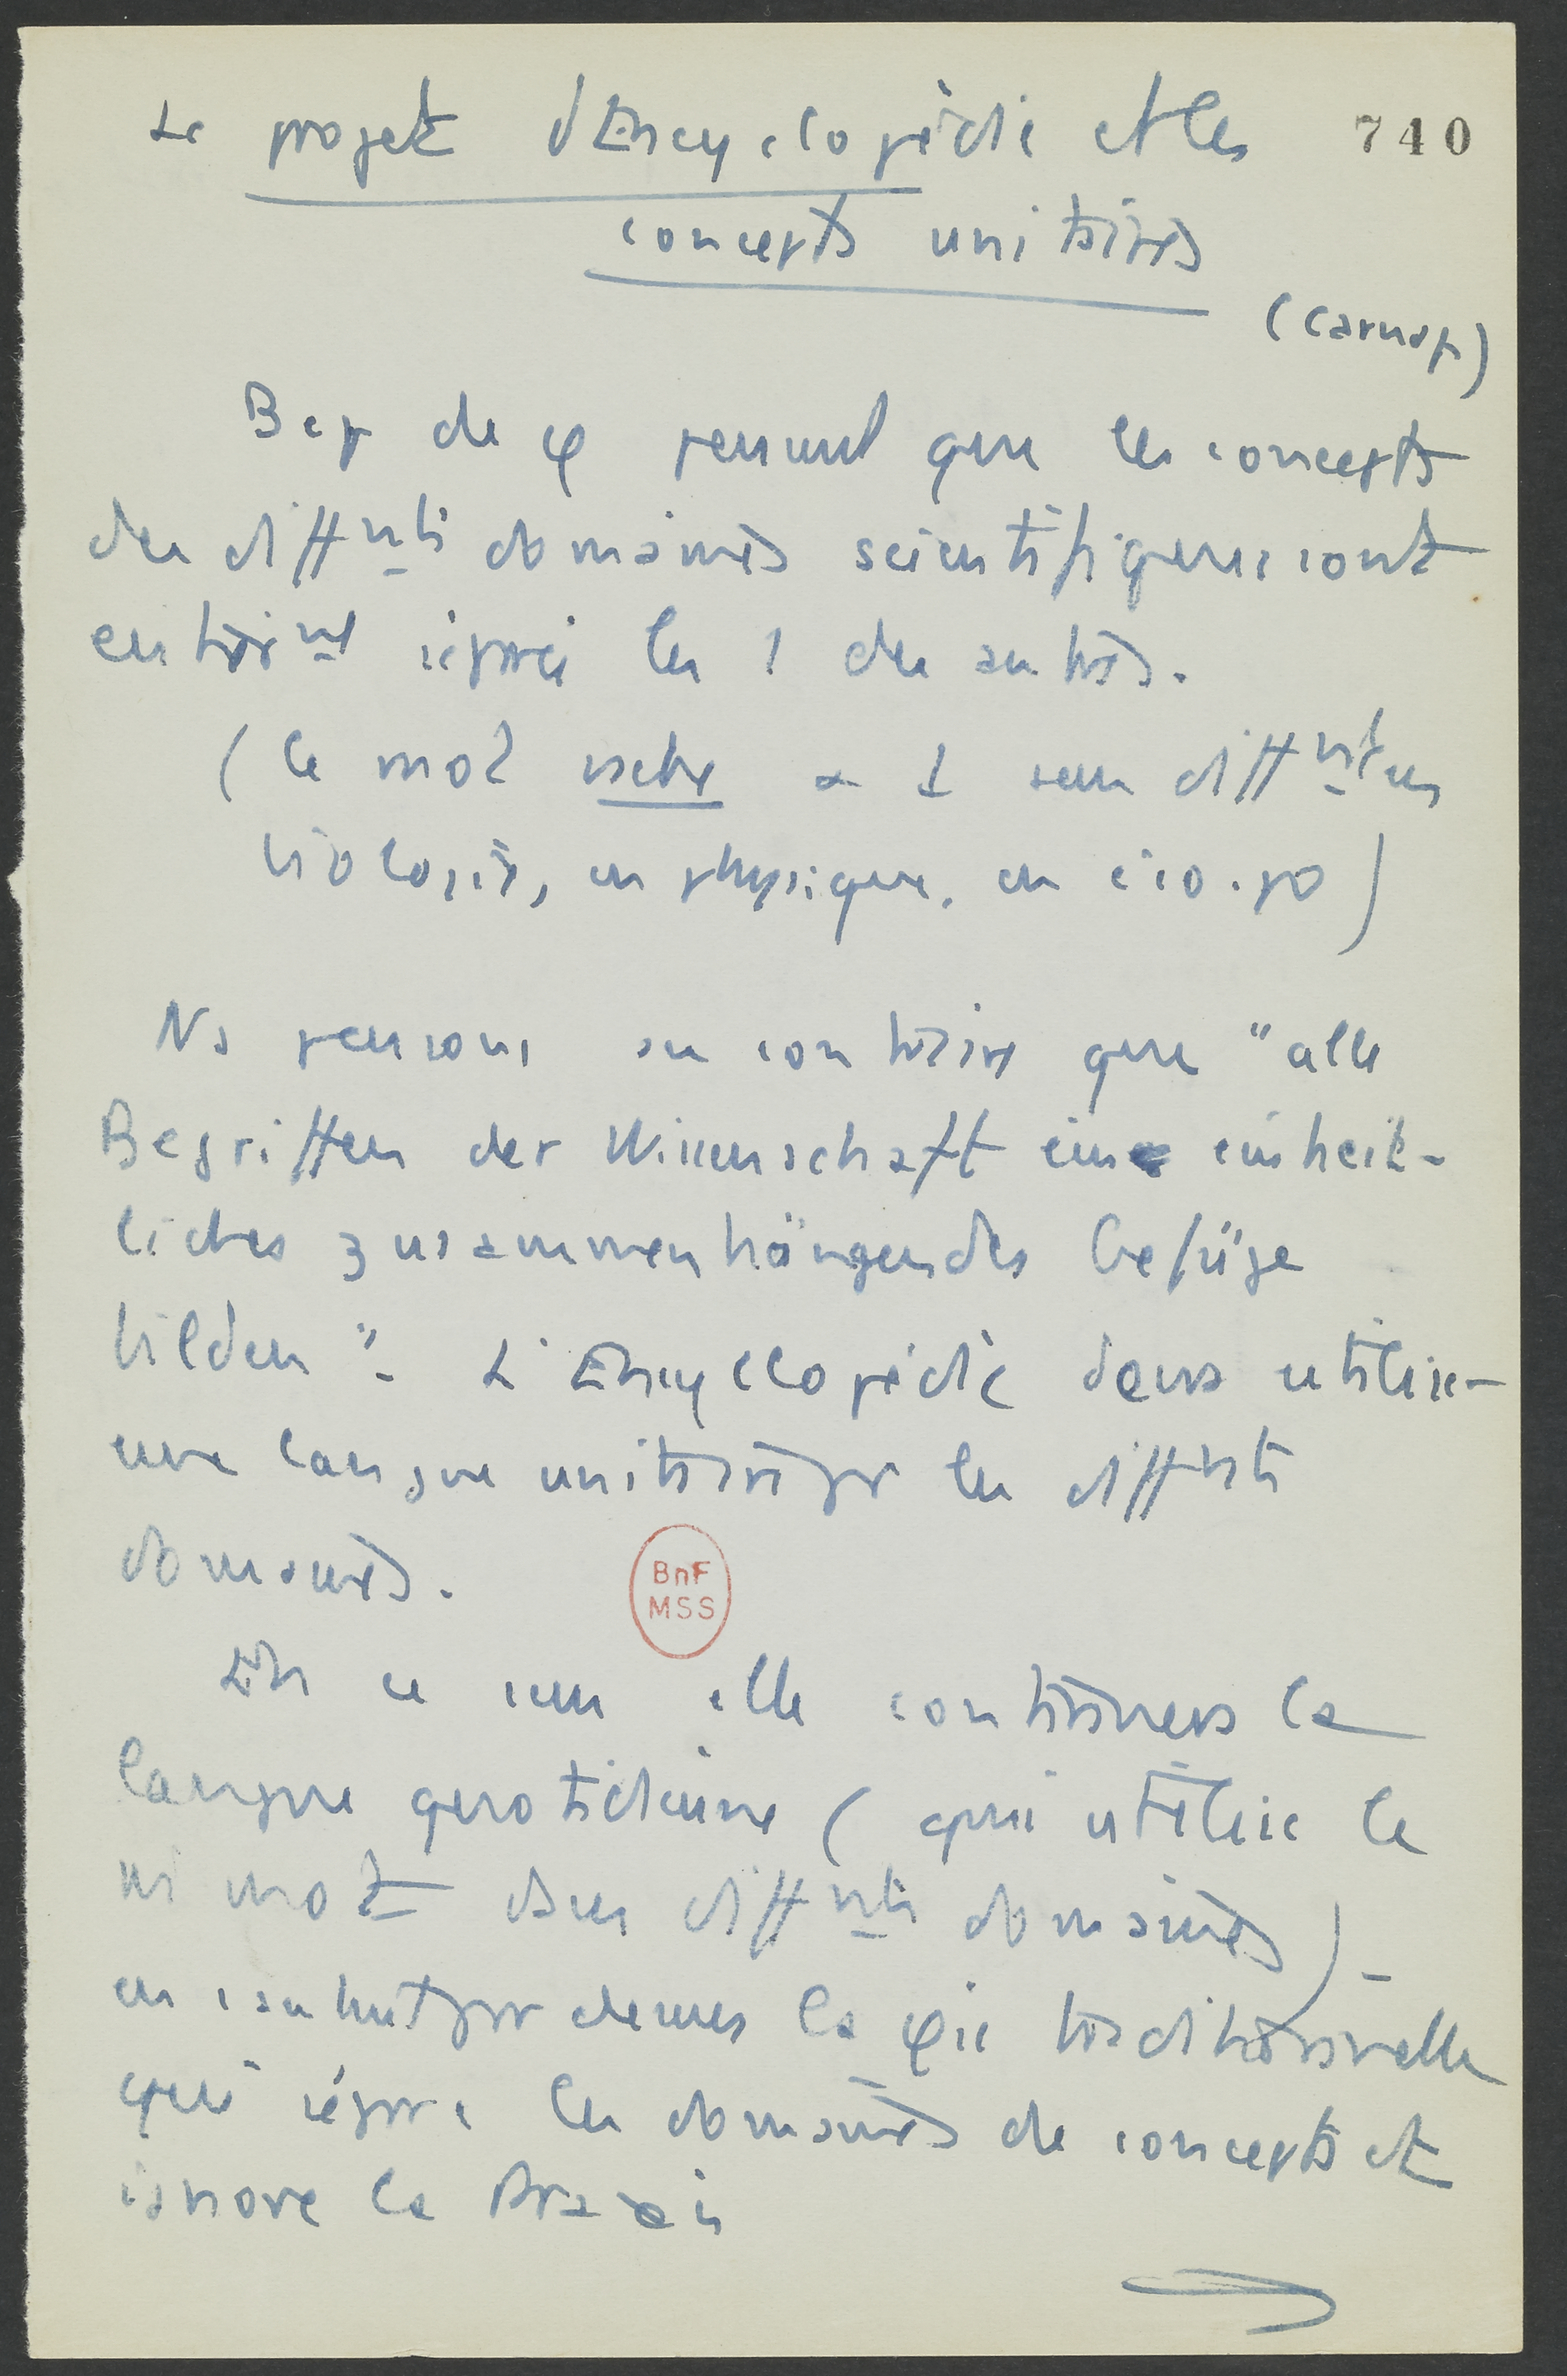 Le projet d'Encyclopédie et les
740
concepts unitaires
(Carnap)
Bcp de φ pensent que les concepts
des diffnts domaines scientifiques sont
entièrnt séparés les 1 des autres.
(le mot a 1 sens diffnt en
biologie, en physique, en éco. po)
Ns pensons au contraire que "alle
Begriffen der Wissenschaft ein einheit-
liches zusammenhängendes Gefüge
bilden". L'Encyclopédie devra utiliser
une langue unitaire pr les diffnts
domaines.
BnF
MSS
En ce sens elle continuera la
langue quotidienne (qui utilise le
m mot dans diffnts domaines) -
la φie traditionnelle
qui sépare les domaines de concepts et
ignore la Praxis